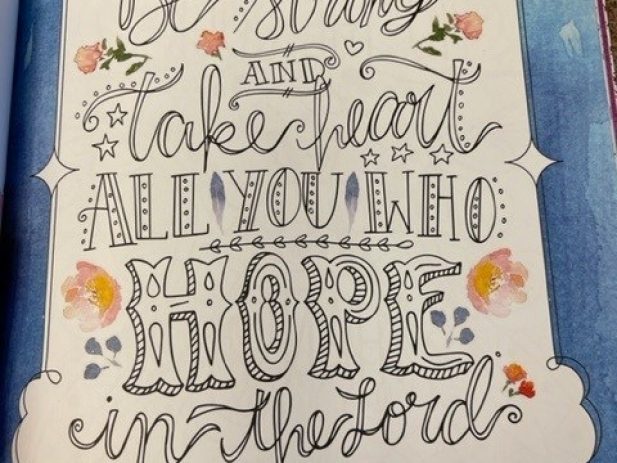 Be strong
AND
take heart
ALL YOU WHO
HOPE
in the Lord.